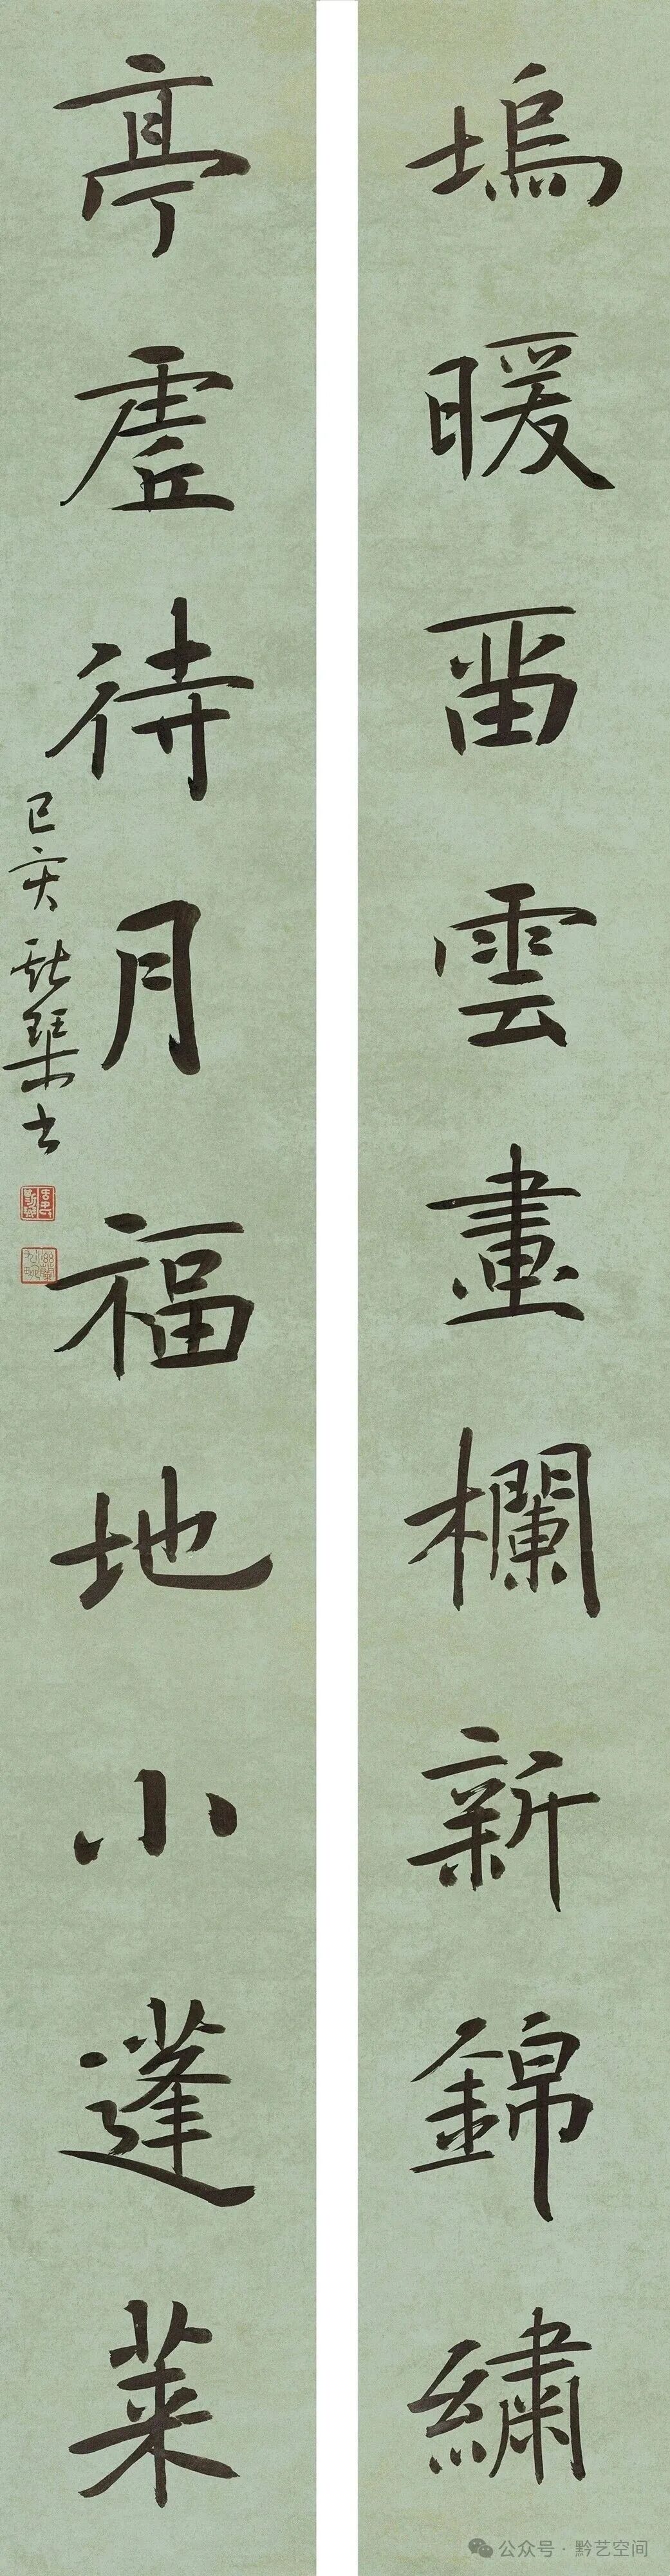 塢暖畱雲畫欄新錦繡
亭虛待月福地小蓬萊
己亥 新集書
公众号·黔艺空间